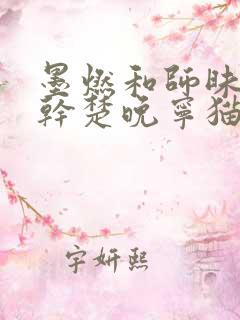 墨燃和師昧
幹楚晚寧猫
宇妍熙